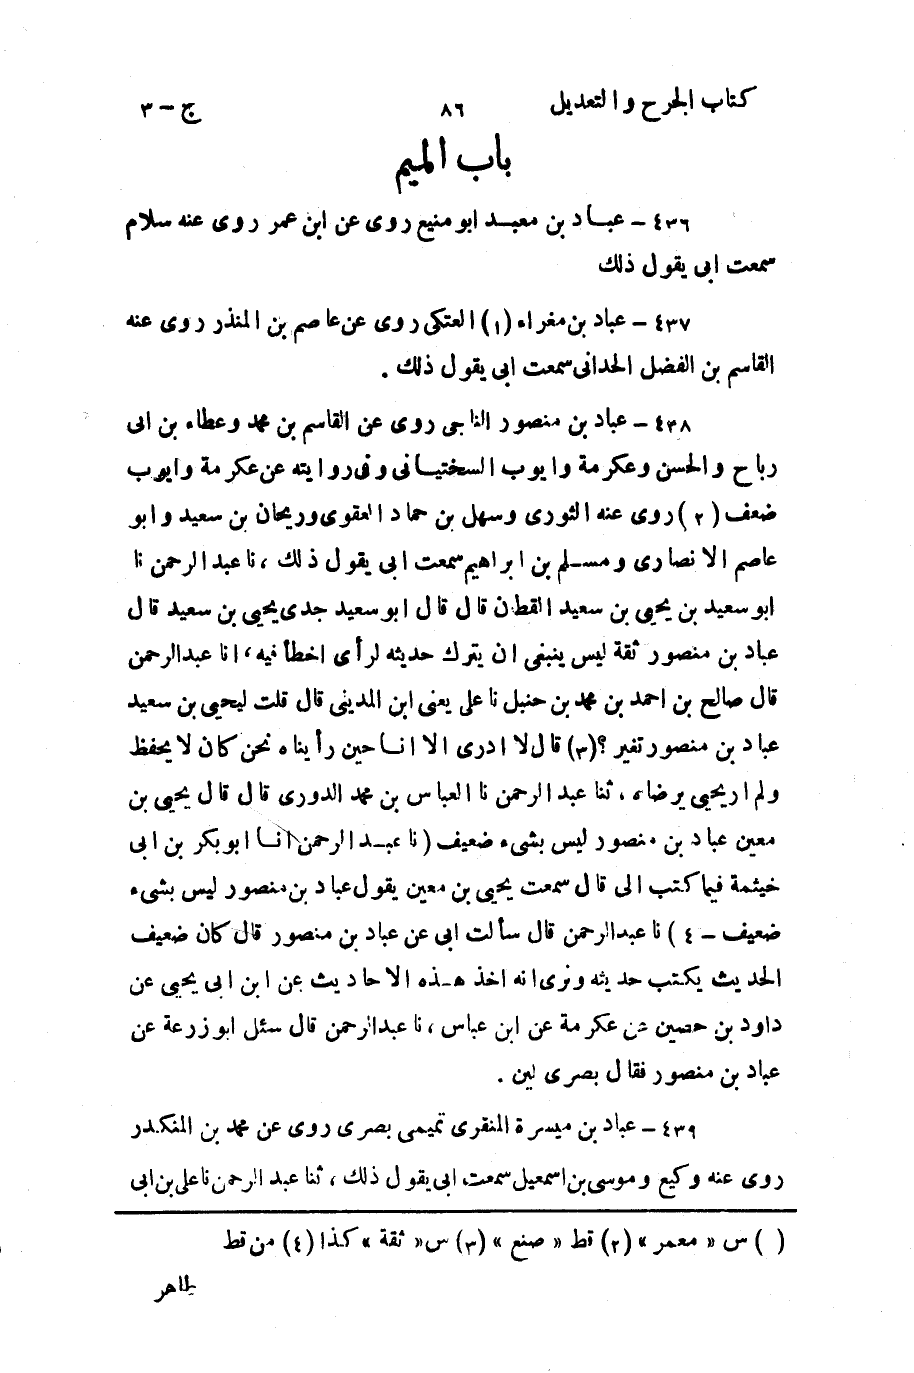 كتاب الجرح والتعديل ٨٦ ج - ٣
باب الميم
٤٣٦ - عباد بن معبد ابو منيع روى عن ابن عمر روى عنه سلام
سمعت ابى يقول ذلك
٤٣٧ - عباد بن مغراء (١) العتكى روى عن عاصم بن المنذر روى عنه
القاسم بن الفضل الحدانى سمعت ابى يقول ذلك .
٤٣٨ - عباد بن منصور الناجى روى عن القاسم بن محمد وعطاء بن ابى
رباح والحسن وعكرمة وايوب السختيانى وفى روايته عن عكرمة وايوب
ضعف (٢) روى عنه الثورى وسهل بن حماد العقوى وريحان بن سعيد وابو
عاصم الانصارى ومسلم بن ابراهيم سمعت ابى يقول ذلك ، نا عبد الرحمن نا
ابو سعيد بن يحيى بن سعيد القطان قال قال ابو سعيد جدى يحيى بن سعيد قال
عباد بن منصور ثقة ليس ينبغى ان يترك حديثه لرأى اخطأ فيه ، انا عبدالرحمن
قال صالح بن احمد بن محمد بن حنبل نا على يعنى ابن المدينى قال قلت ليحيى بن سعيد
عباد بن منصور تغير ؟ (٣) قال لا ادرى الا انا حين رأيناه نحن كان لا يحفظ
ولم ار يحيى يرضاه ، ثنا عبد الرحمن نا العباس بن محمد الدورى قال قال يحيى بن
معين عباد بن منصور ليس بشىء ضعيف (نا عبد الرحمن انا ابو بكر بن ابى
خيثمة فيما كتب الى قال سمعت يحيى بن معين يقول عباد بن منصور ليس بشىء
ضعيف - ٤ ) نا عبدالرحمن قال سألت ابى عن عباد بن منصور قال كان ضعيف
الحديث يكتب حديثه ونرى انه اخذ هذه الاحاديث عن ابن ابى يحيى عن
داود بن حصين عن عكرمة عن ابن عباس ، نا عبدالرحمن قال سئل ابو زرعة عن
عباد بن منصور فقال بصرى لين .
٤٣٩ - عباد بن ميسرة المنقرى تميمى بصرى روى عن محمد بن المنكدر
روى عنه وكيع وموسى بن اسمعيل سمعت ابى يقول ذلك ، ثنا عبد الرحمن نا على بن ابى
( ) س « معمر » (٢) قط « صنع » (٣) س « ثقة » كذا (٤) من قط
طاهر